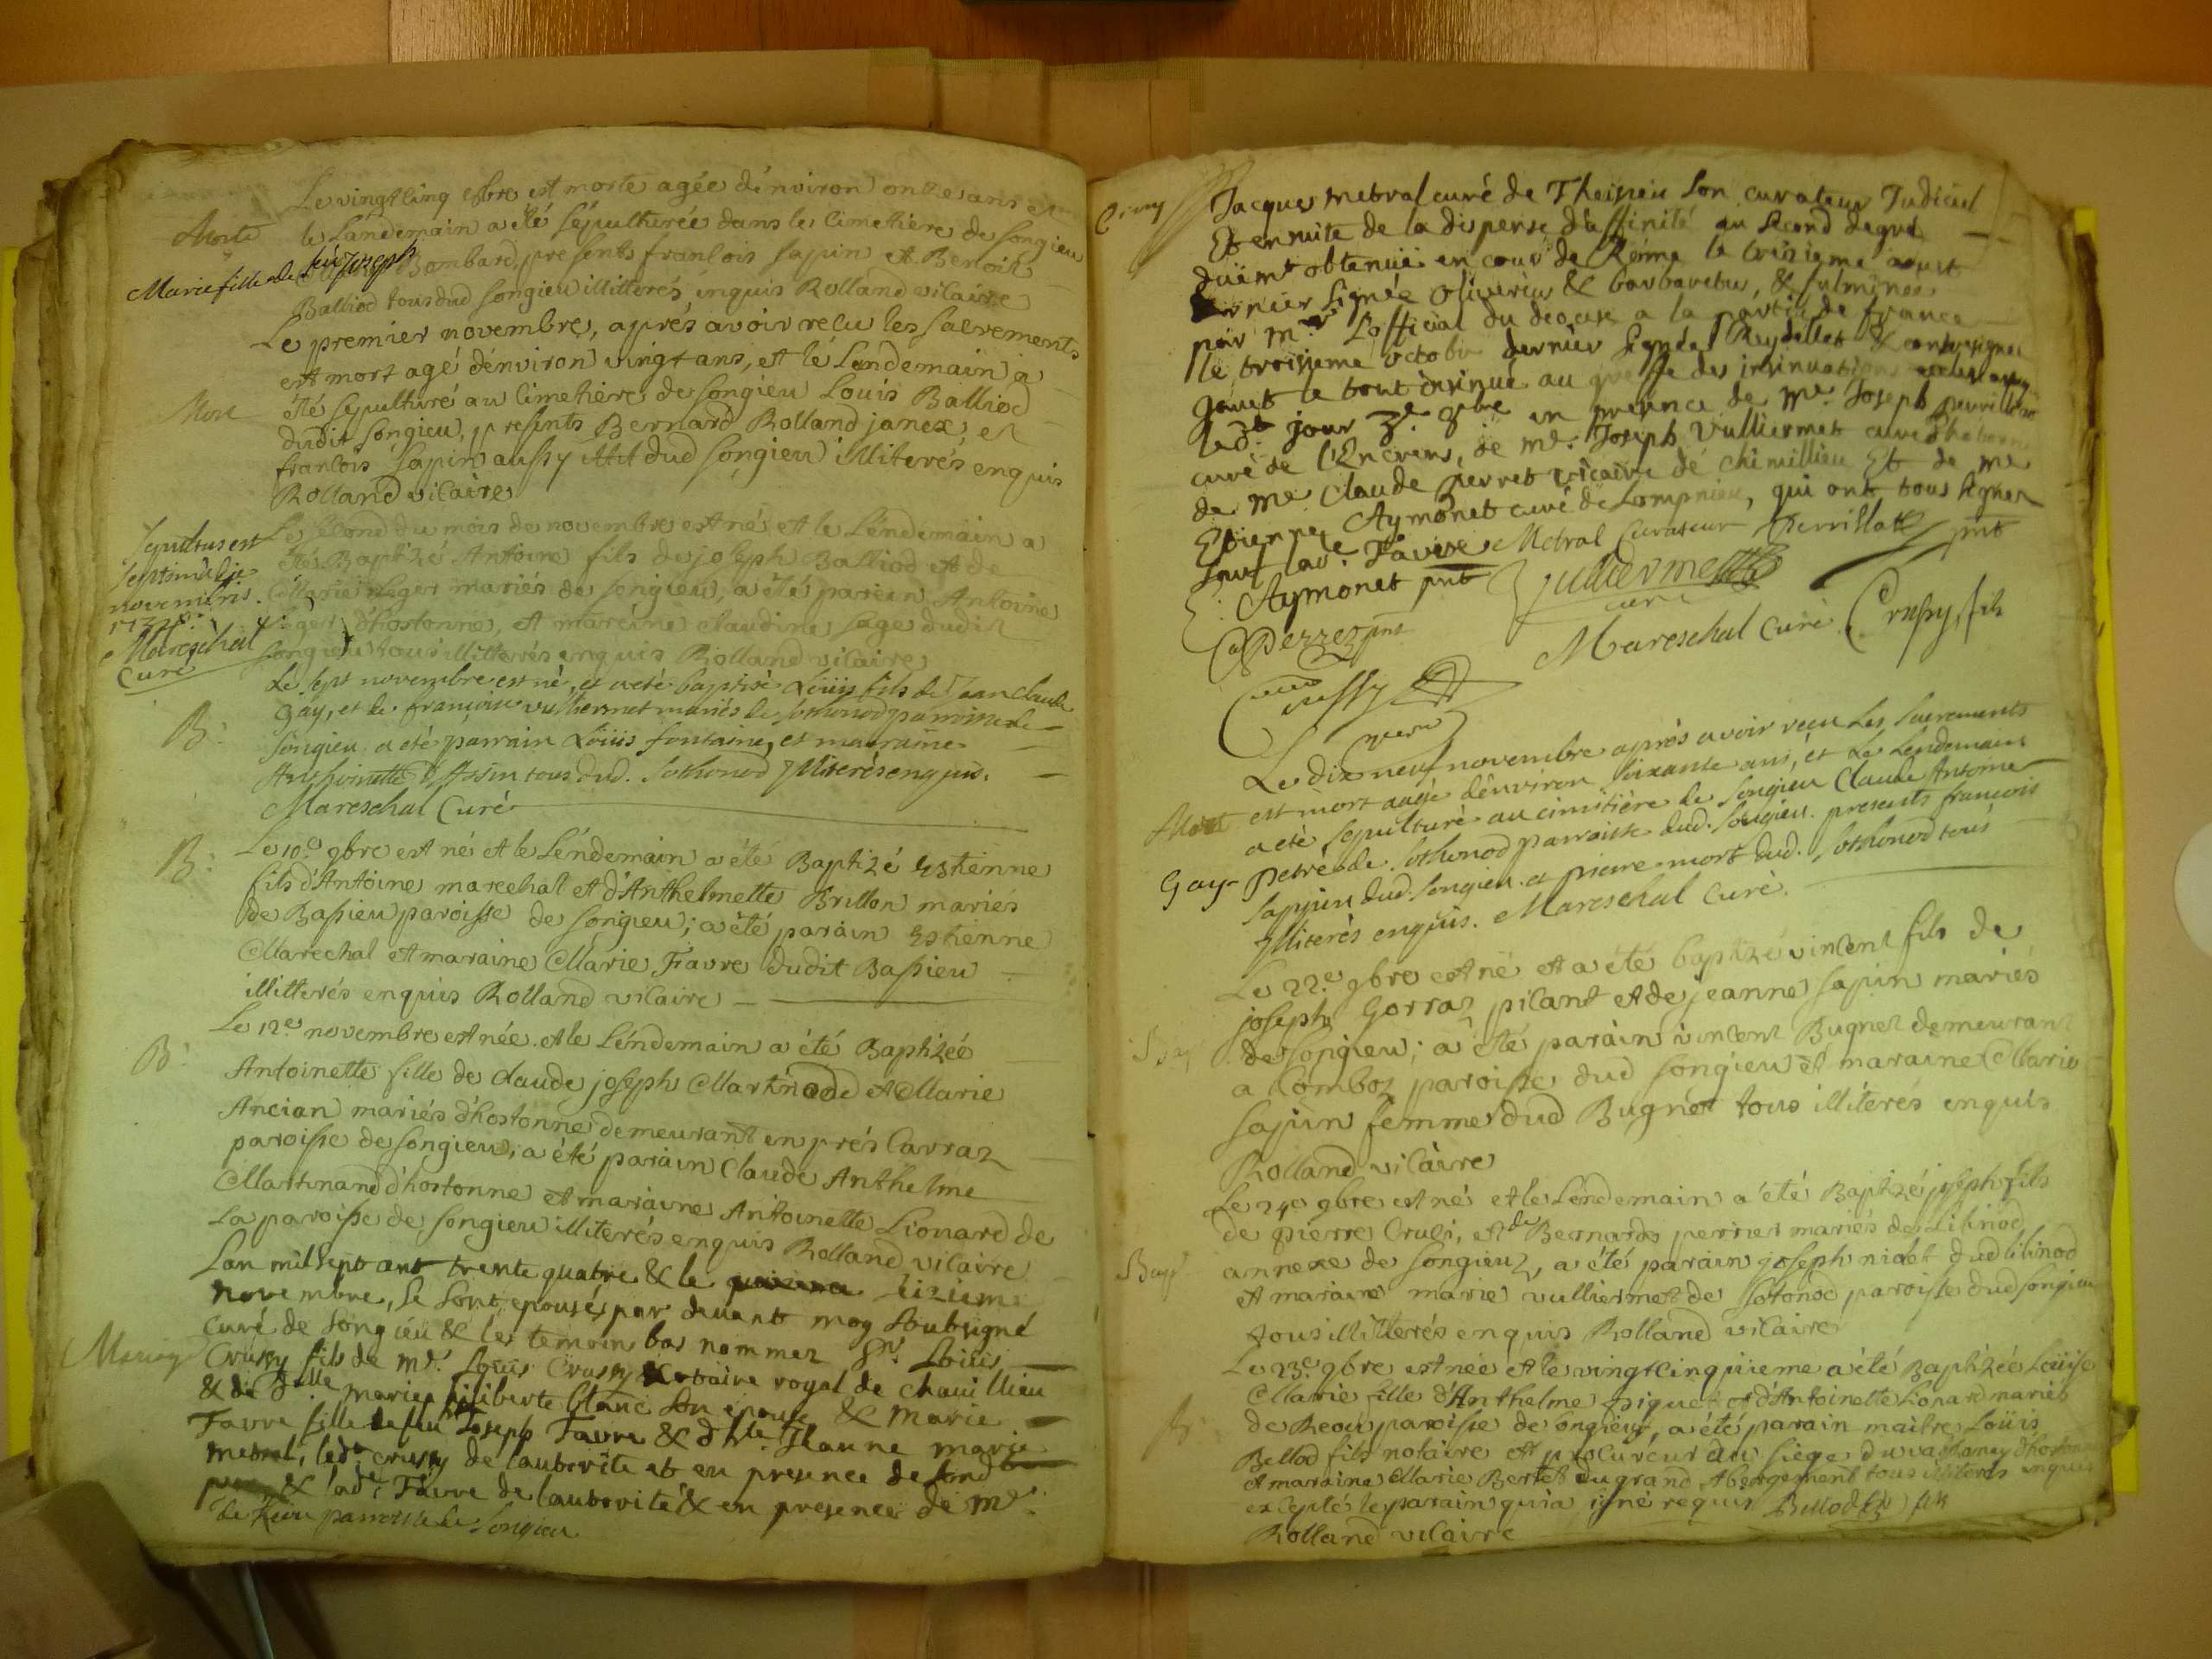 Le vingt cinq 8bre est morte agée dénviron onze ans et
Morte
le Landemain a été sépulturée dans les cimetière de songieu
Marie fille de feu Joseph
Bombard, presents francois sapin et Benoit
Balliod tous dud songieu illitterés enquis Rolland vicaire
Le premier novembre, aprés avoir recu les sacrements
est mort agé dénviron vingt ans, et le Lendemain a
Mort
été sepulturé au cimetière de songieu Louis Balliod
dudit songieu, presents Bernard Rolland janex, et
francois sapin aussy dud songieu illiterés enquis
Rolland vicaire
Le second du mois de novembre est né et le Lendemain a
été Baptizé Antoine fils de joseph Balliod et de
Marie Leger mariés de songieu, a été parain Antoine
Leger d'hostonne, et maraine claudine sage dudit
songieu tous illitterés enquis Rolland vicaire
Sepultus est
septima die
novembris.
Mareschal
Curé
Le sept novembre est né, et a eté baptisé Loüis fils de Jean claude
B:
Gay, et de françoise vulliermet mariés de sothonod parroisse de
songieu a eté parrain Loüis fontaine, et marraine
Anthoinette Assin tous dud. sothonod Illiterés enquis.
Mareschal Curé
Le 10e 9bre est né et le Léndemain a été Baptizé Estienne
B:
fils d'Antoine marechal et d'Anthelmette Brillon mariés
de Bassieu paroisse de songieu; a été parain Estienne
Marechal et maraine Marie Favre dudit Bassieu
illitterés enquis Rolland vicaire
Le 12e novembre est née et le Léndemain a été Baptizée
B:
Antoinette fille de claude joseph Martinand et Marie
Ancian mariés d'hostonne demeurant en prés Carraz
paroisse de songieu, a été parain Claude Anthelme
Martinand d'hostonne et maraine Antoinette Lionard de
La paroisse de songieu illiterés enquis Rolland vicaire
Lan mil sept ant trente quatre & le sizieme
novembre, se sont epousés par devant moy soubsigné
curé de songieu & les temoins bas nommez Sr. Loüis
Mariage
Crussy fils de Me. Loüis Crussy Notaire royal de chavillieu
& de dlle marie filiberte blanc son epouse & Marie
Favre fille de feu Joseph Favre & dhlle. Jeanne marie
metral, ledt. crussy de lautorité et en presence de sond
pere & lade. Favre de lautorité & en presence de Me.
parroisse de songieu
Jacques metral curé de Theizieu son curateur Judiciel
Et ensuite de la dispense d'affinité au second degré
duëmt obtenuë en cour de Rome le treizieme aoust
dernier signée oliverius & barbaretus, & fulminée
par Mr. Lofficial du diocese a la partie de france
le troisieme octobre dernier signée Reydellet & contresigné
le tout insinué au greffe des insinuations
ledt. jour 3e. 9bre en presence de Me. Joseph perrillat
curé de l'Encrens, de Me. Joseph Vulliermet curé
de Me. Claude perret vicaire de chimillieu Et de Me
Etienne Aymonet curé de Lompnieu, qui ont tous signez
sauf lade. Favre Metral Curateur Perrillat pnt
Aymonet pnt
Vulliermet
curé
C. Perret pnt
Mareschal Curé
Crussy fils
Crussy
pere
Le dix neuf novembre aprés avoir receu Les sacrements
Mort
est mort aagé dénviron soixante ans, et Le Lendemain
a eté sepulturé au cimitière de songieu Claude Antoine
Gay
petré de sothonod parroisse dud. songieu. presents francois
sappin dud. songieu et pierre mort dud. sothonod tous
Illiterés enquis. Mareschal Curé.
Le 22e 9bre est né et a été baptizé vincent fils de
joseph Gorraz pilant et de jeanne sapin mariés
de songieu; a été parain vincent Bugnet demeurant
a Comboz paroisse dud songieu et maraine Marie
sapin femme dud Bugnet tous illitérés enquis
Rolland vicaire
Le 24e 9bre est né et le Léndemain a été Baptizé joseph fils
de pierre Crusi, et de Bernarde perrier mariés de Lilinod
Bap
annexe de songieu, a été parain joseph nidet dud lilinod
et maraine marie vulliermet de sotonod paroisse dud songieu
tous illitterés enquis Rolland vicaire
Le 23e 9bre est née et le vingt cinquieme a été Baptizée Loüise
Marie fille d'Anthelme piquet et d'Antoinette Lonard mariés
B
paroisse de songieu, a été parain maître Loüis
Bellod fils notaire et procureur au siege du valromey
et maraine Marie Bertet du grand Abergement tous illiterés enquis
excepté le parain qui a signé requis Bellod fils
Rolland vicaire